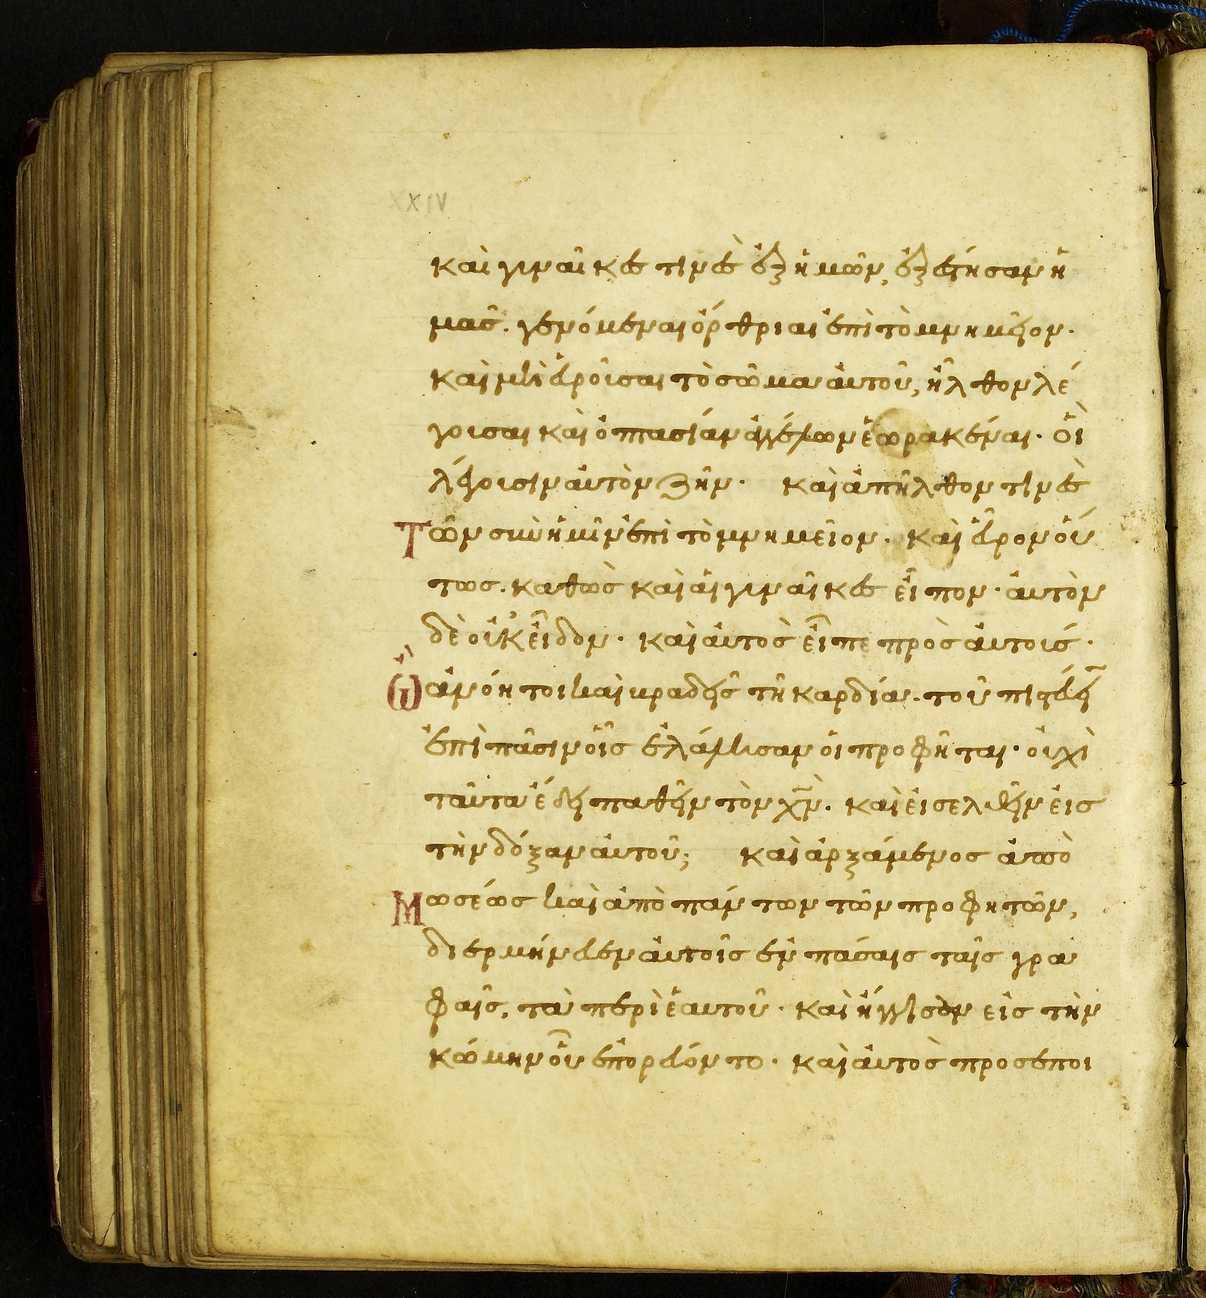 XXIV
καὶ γυναῖκες τινὲς ἐξ ἡμῶν, ἐξέστησαν ἡ
μᾶς. γενόμεναι ὄρθριαι ἐπὶ τὸ μνημεῖον.
καὶ μὴ εὑροῦσαι τὸ σῶμα αὐτοῦ, ἦλθον λέ
γουσαι καὶ ὀπτασίαν ἀγγέλων ἑωρακέναι· οἳ
λέγουσιν αὐτὸν ζῆν· καὶ ἀπῆλθον τινὲς
Τῶν σὺν ἡμῖν ἐπὶ τὸ μνημεῖον. καὶ εὗρον οὕ
τως. καθὼς καὶ αἱ γυναῖκες εἶπον· αὐτὸν
δὲ οὐκ εἶδον· καὶ αὐτὸς εἶπε πρὸς αὐτούς·
Ὦ ἀνόητοι καὶ βραδεῖς τῇ καρδία. τοῦ πιστεύειν
ἐπὶ πᾶσιν οἷς ἐλάλησαν οἱ προφῆται· οὐχὶ
ταῦτα ἔδει παθεῖν τὸν χν̄. καὶ εἰσελθεῖν εἰς
τὴν δόξαν αὐτοῦ; καὶ ἀρξάμενος ἀπὸ
Μωσέως καὶ ἀπὸ πάντων τῶν προφητῶν,
διερμήνευεν αὐτοῖς ἐν πάσαις ταῖς γρα
φαῖς, τὰ περὶ ἑαυτοῦ· καὶ ἤγγισαν εἰς τὴν
κώμην οὗ ἐπορεύοντο· καὶ αὐτὸς προσεποι